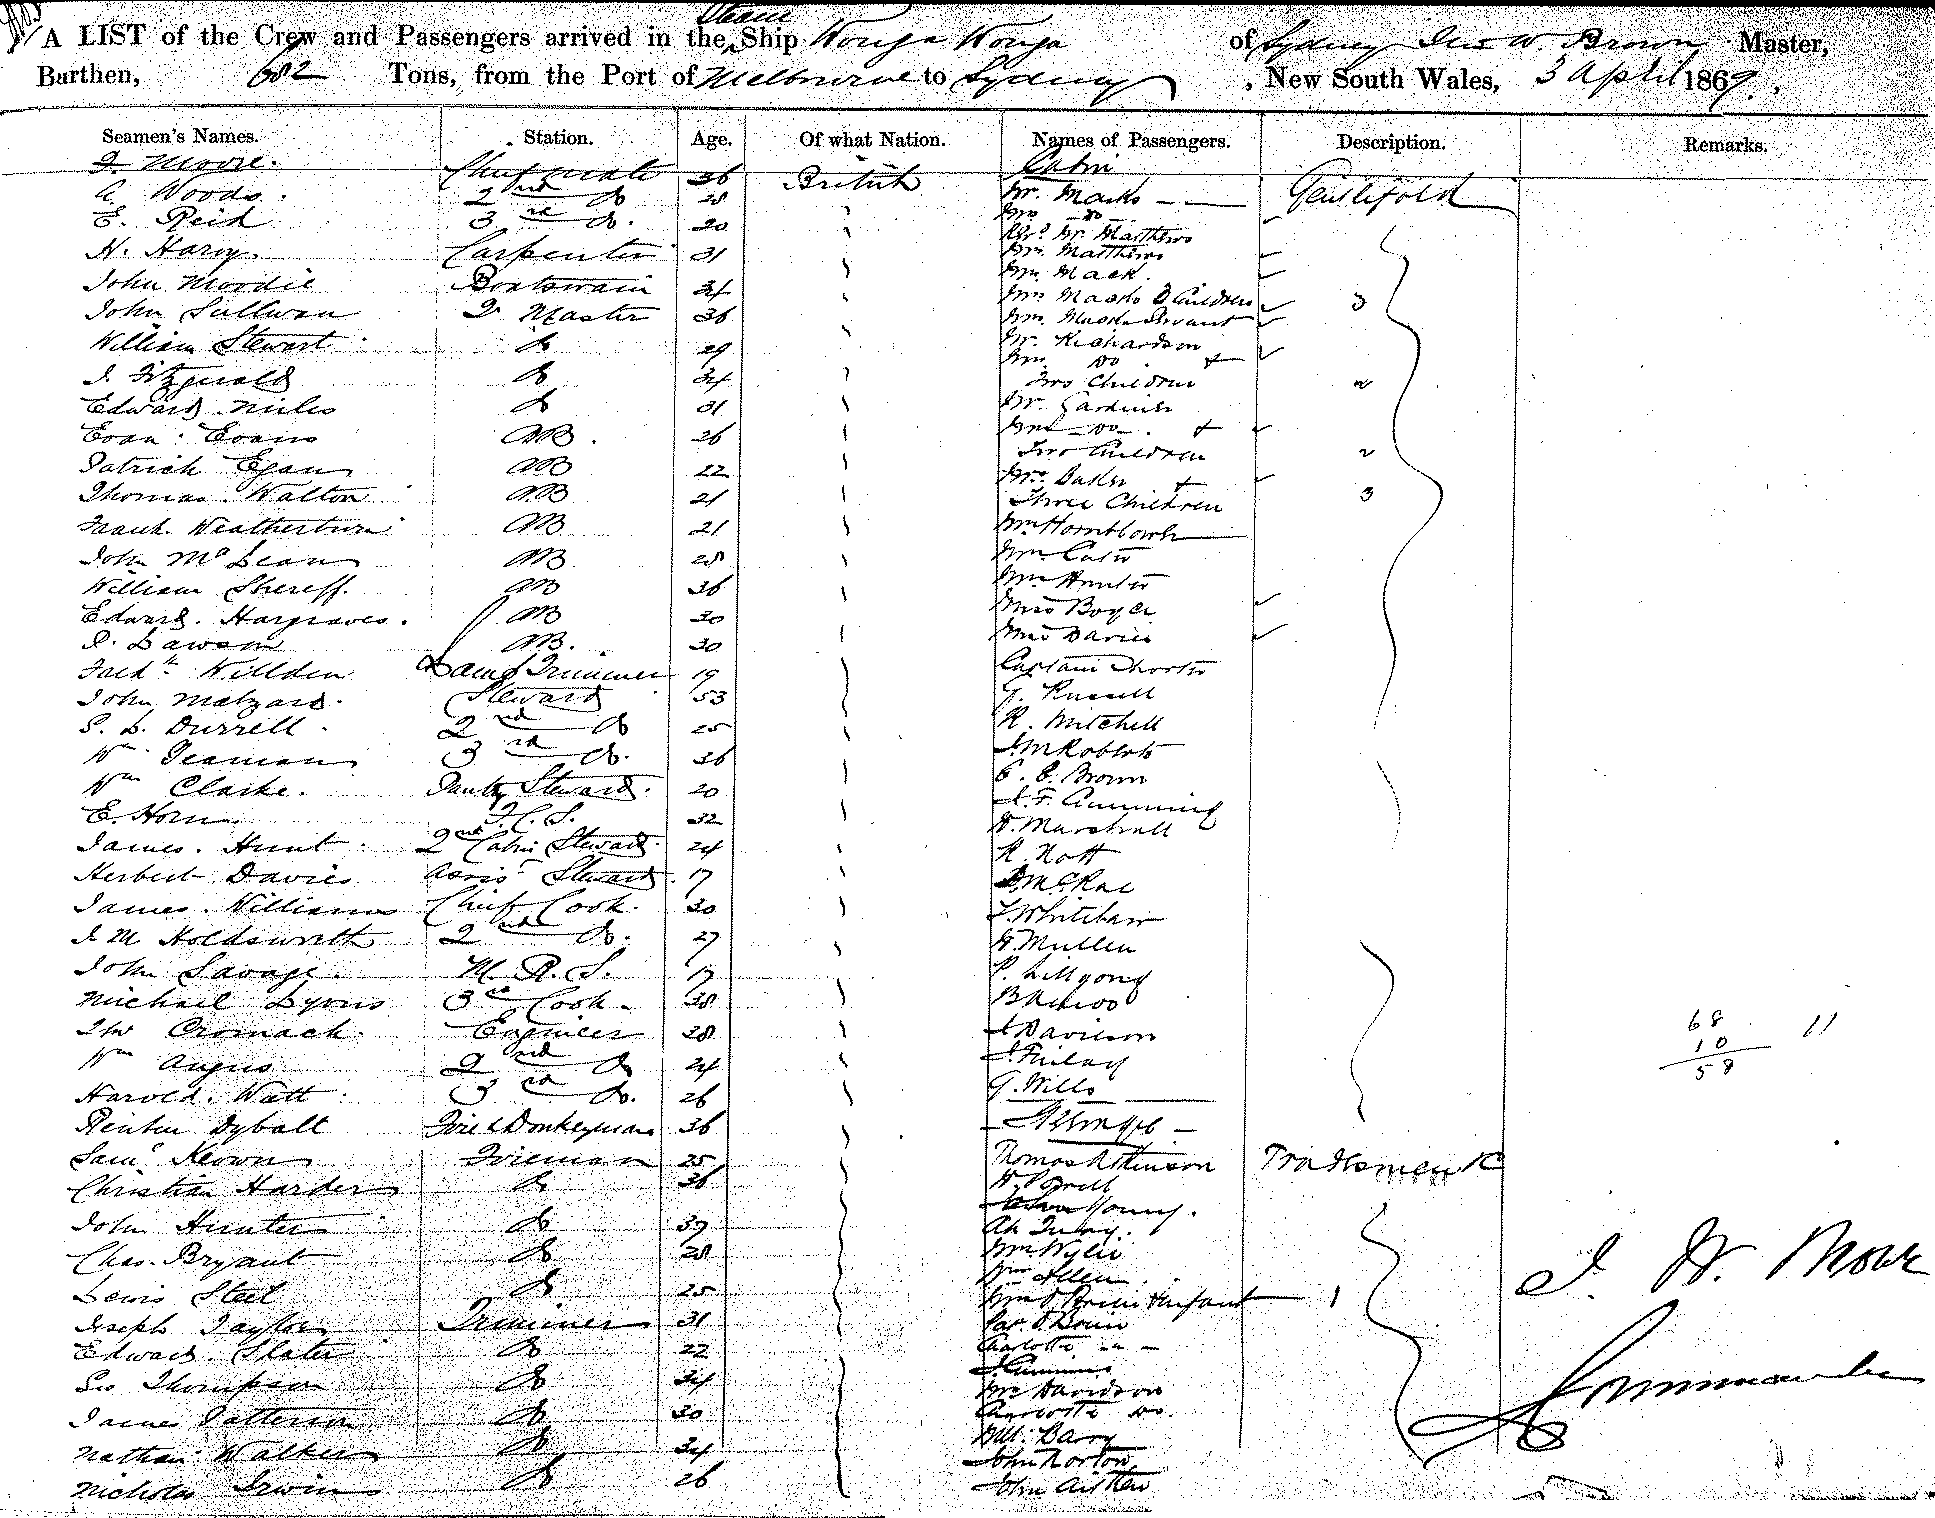 A LIST of the Crew and Passengers arrived in the Steam Ship Wonga Wonga of Sydney Jno W. Brown Master,
Burthen, 682 Tons, from the Port of Melbourne to Sydney, New South Wales, 3 April 1869.
Seamen's Names. Station. Age. Of what Nation. Names of Passengers. Description. Remarks.
J. Moore. Chief mate 36 British
A Woods. 2nd Do 28
E. Reid 3rd Do. 20
H. Harvy. Carpenter 31
John Moodie Boatswain 34
John Sullivan Qr Master 36
William Stewart Do 29
J. Fitzgerald Do 34
Edward Miles Do 31
Evan Evans AB. 26
Patrick Egan AB 22
Thomas Walton AB 21
Frank Weatherburn AB 21
John McLean AB 28
William Shereff. AB 36
Edward. Hargraves. AB 30
J. Lawson AB. 30
Fredk Willden Lamp Trimmer 19
John Matzard. Steward 53
S. L. Durrell 2nd Do 25
Wm Seaman 3rd Do. 36
Wm Clarke. Pantry Steward. 20
E. Horn. F.C.S. 32
James. Hunt 2nd Cabin Steward. 24
Herbert Davies Assist Steward 17
James. Williams Chief Cook. 30
J M Holdsworth 2nd Do. 27
John Savage. M. R. S. 17
Michael Lyons 3rd Cook 28
Cromack. Engineer 28
Wm Angus 2nd Do 24
Harold. Watt 3rd Do. 26
Reuben Dyball Fire & Donkeyman 36
Saml Keown Fireman 25
Christian Harder Do 36
John Hunter Do 37
Chas. Bryant Do 28
Lewis Steel Do 25
Joseph Taylor Trimmer 31
Edward. Slater Do 22
Geo Thompson Do 34
James Patterson Do 30
Nathan Walker Do 34
Nicholas Irwin Do 26
Cabin
Mr. Marks Gentlefolk
Mrs Do
Revd Mr Matthews
Mrs. Matthews
Mrs Mack.
Mrs Marks 3 Children 3
Mrs. Marks Servant
Mr. Richardson
Mrs Do +
Two Children 2
Mr. Gardiner
Mrs Do +
Two Children 2
Mrs. Baker +
Three Children 3
Mrs Hornblower
Mrs Hunter
Miss Boyce
Miss Davies
Captain
G. Russell
R. Mitchell
J. M Roberts
C. C. Brown
J. F. Cumming
W. Marshall
R. Nott
D. McRae
J. Whitelaw
W. Mullen
J Davidson
J. Finlay
G. Wills
Steerage
Thomas Atkinson Tradesmen &c
W Powell
Young.
Mrs. Wylie
Mrs Allen
Mrs O'Brien & Infant 1
Charlotte
J. Cummins
Mrs Davidson
Charlotte Do.
Wm. Barry
John Norton
John Aitken
68 11
10
58
J. W. Brown
Commander